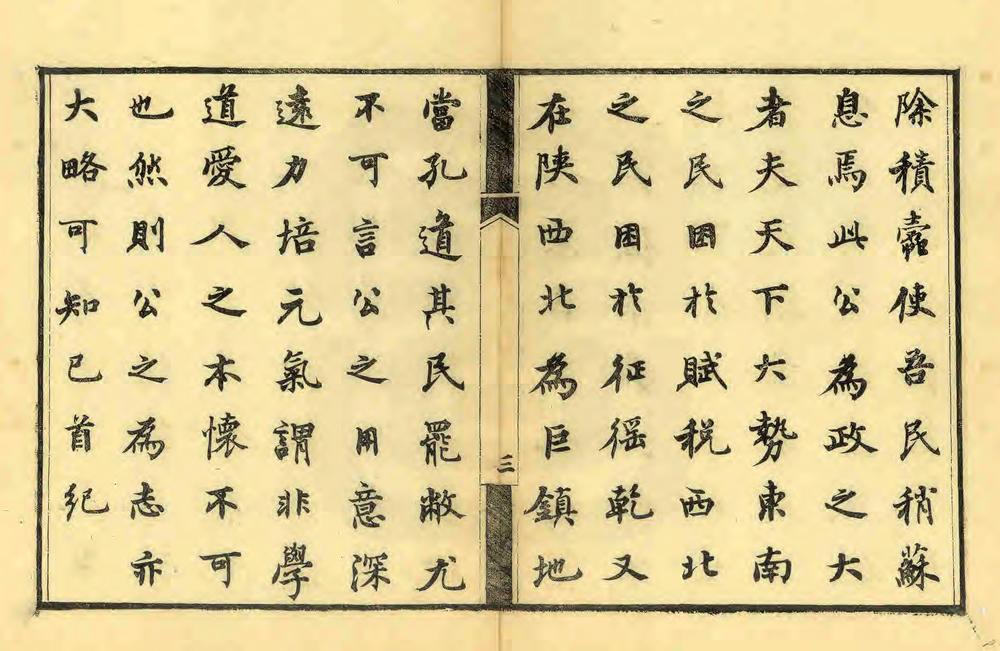 除積蠹使吾民稍蘇
息焉此公為政之大
者夫天下大勢東南
之民困於賦税西北
之民困於征徭乾又
在陝西北為巨鎮地
三
當孔道其民罷敝尤
不可言公之用意深
遠力培元氣謂非學
道愛人之本懷不可
也然則公之為志亦
大略可知已首紀